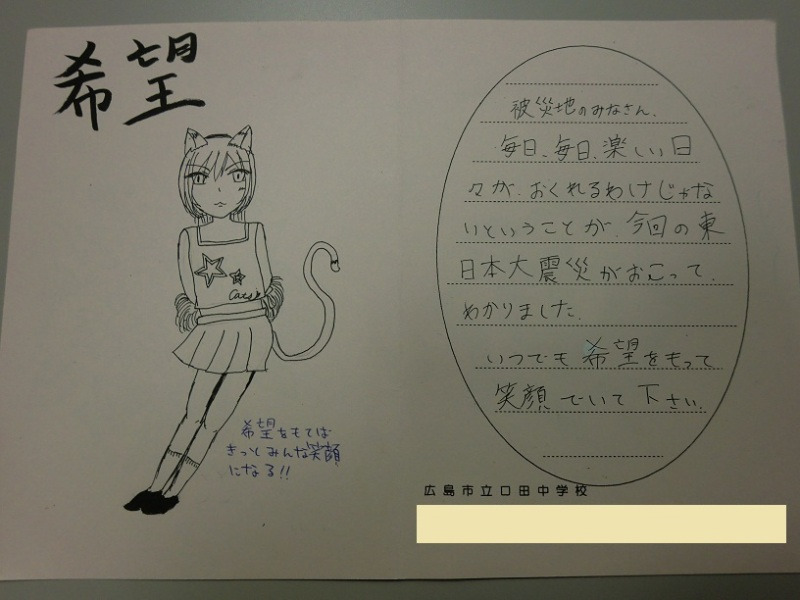 希望
Cats
希望をもてば
きっとみんな笑顔
になる!!
被災地のみなさん、
毎日、毎日、楽しい日
々が、おくれるわけじゃな
いということが、今回の東
日本大震災がおこって、
わかりました。
いつでも希望をもって
笑顔でいて下さい
広島市立口田中学校